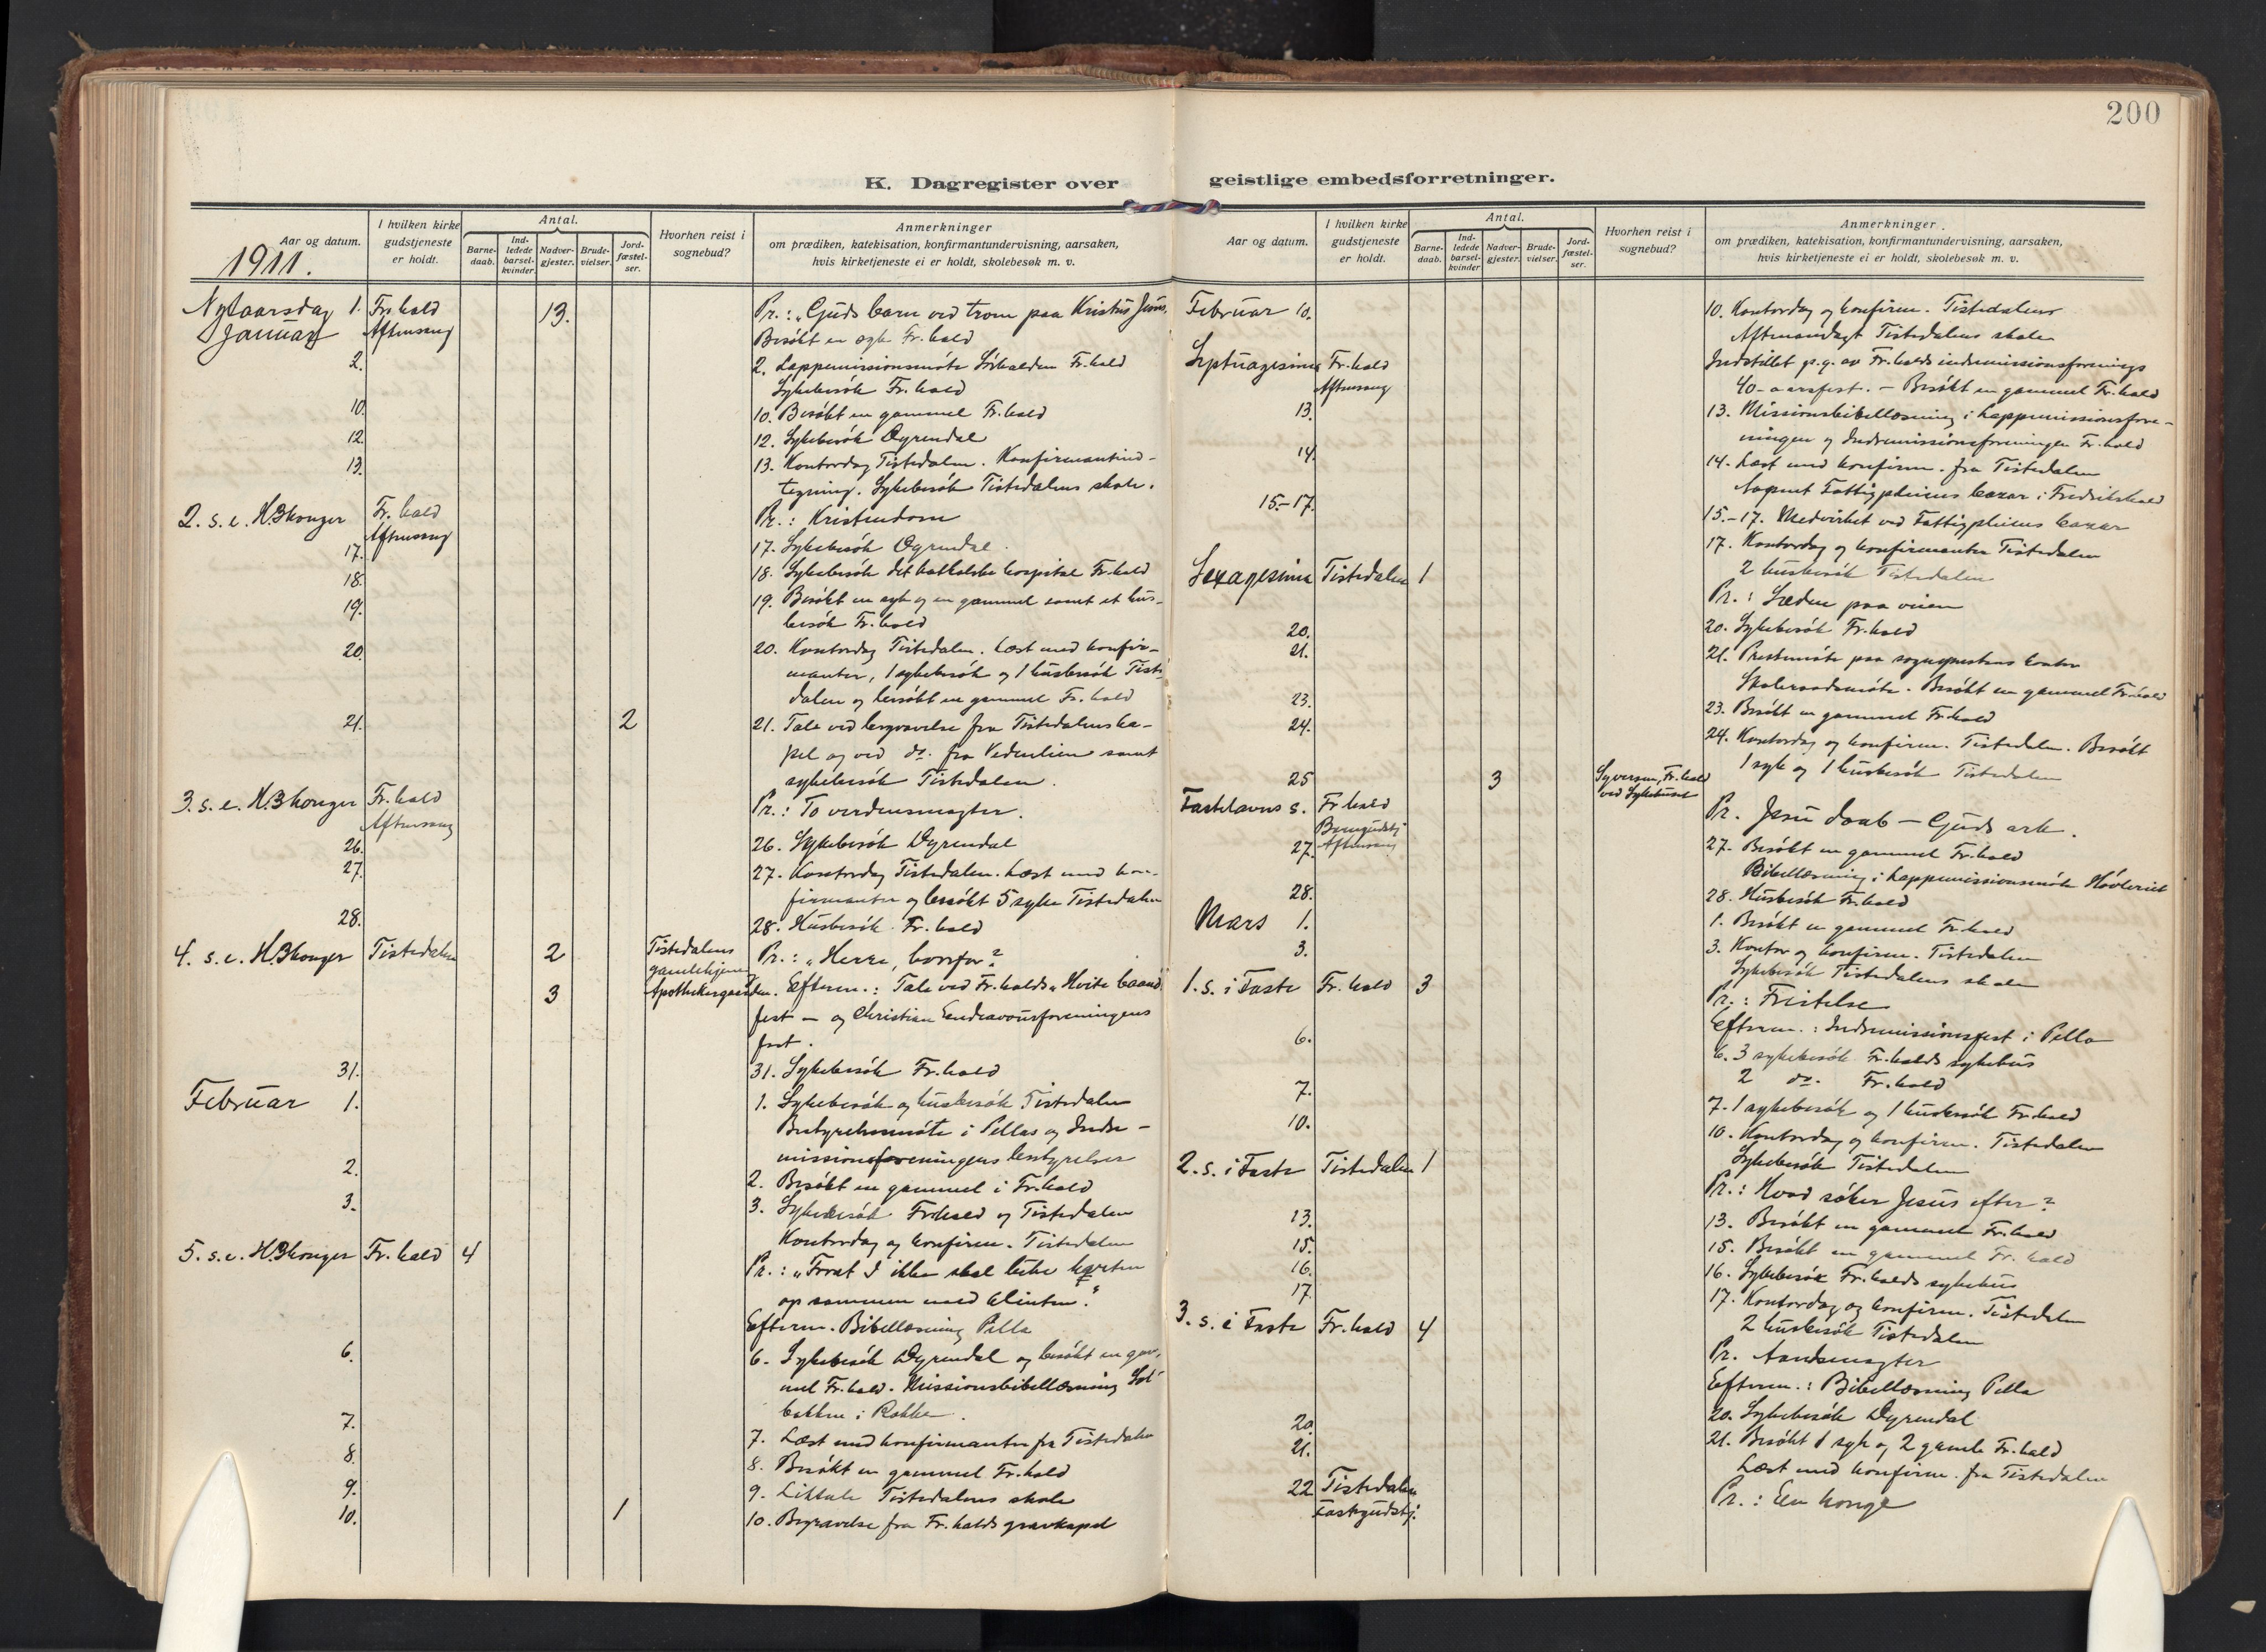 200
K. Dagregister over
geistlige embedsforretninger.
Aar og datum.
I hvilken kirke
gudstjeneste
er holdt.
Antal.
Barne-
daab.
Ind-
ledede
barsel-
kvinder.
Nadver-
gjester.
Brude-
vielser.
Jord-
fæstel-
ser.
Hvorhen reist i
sognebud?
Anmerkninger
om prædiken, katekisation, konfirmantundervisning, aarsaken,
hvis kirketjeneste ei er holdt, skolebesøk m. v.
1911.
Nytaarsdag 1. Fr.hald 13. Pr.: "Guds barn ved troen paa Kristus Jesus.
Januar Aftensang Besökt en syk Fr.hald
2. 2. Lappemissionsmöte Fr.hald
Sykebesök Fr.hald
10. 10. Besökt en gammel Fr.hald
12. 12. Sykebesök Dyrendal
13. 13. Kontordag Tistedalen. Konfirmantind-
tegning. Sykebesök Tistedalens skole.
2. s. e. H.3konger Fr.hald Pr.: Kristendom
Aftensang
17. 17. Sykebesök Dyrendal
18. 18. Sykebesök det katholske hospital Fr.hald
19. 19. Besökt en syk og en gammel samt et hus-
besök Fr.hald
20. 20. Kontordag Tistedalen. Læst med konfir-
manter, 1 sykebesök og 1 husbesök Tiste-
dalen og besökt en gammel Fr.hald
21. 2 21. Tale ved begravelse fra Tistedalens ka-
pel og ved do. fra Vedenlien samt
sykebesök Tistedalen.
3. s. e. H.3konger Fr.hald Pr.: To verdensmagter.
Aftensang
26. 26. Sykebesök Dyrendal
27. 27. Kontordag Tistedalen. Læst med kon-
firmanter og besökt 5 syke Tistedalen
28. 28. Husbesök Fr.hald
4. s. e. H.3konger Tistedalen 2 Tistedalens gamlehjem Pr.: "Herre, hvorfor?
3 Apothekergaarden. Efterm.: Tale ved Fr.halds "Hvite baand"
fest - og Christian Endeavourforeningens
fest.
31. 31. Sykebesök Fr.hald
Februar 1. 1. Sykebesök og husbesök Tistedalen
Bestyrelsesmöte i Pellas og Indre-
missionsforeningens bestyrelser
2. 2. Besökt en gammel i Fr.hald
3. 3. Sykebesök Fr.hald og Tistedalen
Kontordag og konfirm. Tistedalen
5. s. e. H.3konger Fr.hald 4 Pr.: "Forat I ikke skal luke hveten
op sammen med klinten."
Efterm. Bibellæsning Pella
6. 6. Sykebesök Dyrendal og besökt en gam-
mel Fr.hald. Missionsbibellæsning Sol-
bakken i Rokke.
7. 7. Læst med konfirmanter fra Tistedalen
8. 8. Besökt en gammel Fr.hald
9. 9. Liktale Tistedalens skole
10. 1 10. Begravelse fra Fr.halds gravkapel
Aar og datum.
I hvilken kirke
gudstjeneste
er holdt.
Antal.
Barne-
daab.
Ind-
ledede
barsel-
kvinder
Nadver-
gjester.
Brude-
vielser.
Jord-
fæstel-
ser.
Hvorhen reist i
sognebud?
Anmerkninger
om prædiken, katekisation, konfirmantundervisning, aarsaken,
hvis kirketjeneste ei er holdt, skolebesøk m. v.
Februar 10. 10. Kontordag og konfirm. Tistedalen
Tistedalens skole
Septuagesima Fr.hald Indstillet p. g. av Fr.halds indremissionsforenings
Aftensang 40-aarsfest. - Besökt en gammel Fr.hald
13. 13. Missionsbibellæsning i Lappemissionsfore-
ningen og Indremissionsforeningen Fr.hald
14. 14. Læst med konfirm. fra Tistedalen
Aapnet Fattigpleiens bazar i Fredrikshald
15.-17. 15.-17. Medvirket ved Fattigpleiens bazar
17. Kontordag og konfirmanter Tistedalen
2 husbesök Tistedalen
Sexagesima Tistedalen 1 Pr.: Sæden paa veien
20. 20. Sykebesök Fr.hald
21. 21. Prestemöte paa sogneprestens kontor
Skoleraadsmöte. Besökt en gammel Fr.hald
23. 23. Besökt en gammel Fr.hald
24. 24. Kontordag og konfirm. Tistedalen. Besökt
1 syk og 1 husbesök Tistedalen
25 3 Syversen, Fr.hald
ved Sykehuset
Fastelavns s. Fr.hald Pr. Jesu daab - Guds ark.
Barnegudstj
Aftensang
27. 27. Besökt en gammel Fr.hald
Bibellæsning i Lappemissionsmöte
28. 28. Husbesök Fr.hald
Mars 1. 1. Besökt en gammel Fr.hald
3. 3. Kontor og konfirm. Tistedalen
Sykebesök Tistedalens skole
1. s. i Faste Fr.hald 3 Pr.: Fristelse
Efterm.: Indremissionsfest i Pella
6. 6. 3 sykebesök Fr.halds sykehus
2 do. Fr.hald
7. 7. 1 sykebesök og 1 husbesök Fr.hald
10. 10. Kontordag og konfirm. Tistedalen
Sykebesök Tistedalen
2. s. i Faste Tistedalen 1 Pr.: Hvad söker Jesus efter?
13. 13. Besökt en gammel Fr.hald
15. 15. Besökt en gammel Fr.hald
16. 16. Sykebesök Fr.halds sykehus
17 17. Kontordag og konfirm. Tistedalen
2 husbesök Tistedalen
3. s. i Faste Fr.hald 4 Pr. Aandsmagter
Efterm.: Bibellæsning Pella
20. 20. Sykebesök Dyrendal
21. 21. Besökt 1 syk og 2 gamle Fr.hald
Læst med konfirm. fra Tistedalen
22 Tistedalen Pr.: En konge
Fastegudstj.